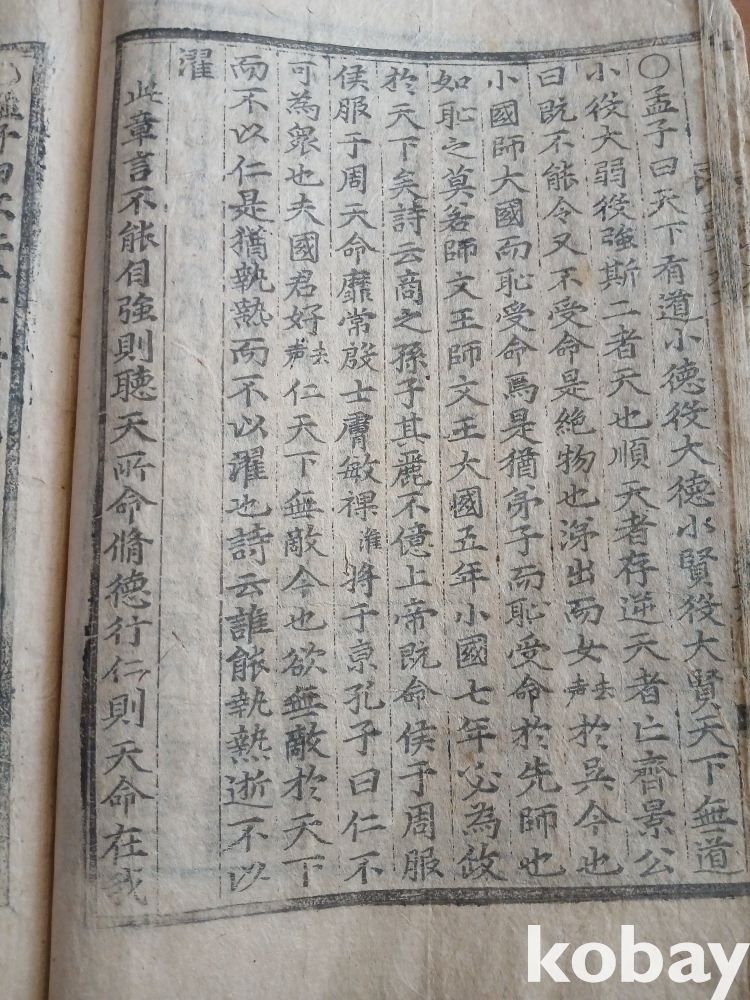 ○孟子曰天下有道小德役大德小賢役大賢天下無道
小役大弱役強斯二者天也順天者存逆天者亡齊景公
曰既不能令又不受命是絶物也涕出而女去声於吳今也
小國師大國而恥受命焉是猶弟子而恥受命於先師也
如恥之莫若師文王師文王大國五年小國七年必為政
於天下矣詩云商之孫子其麗不億上帝既命侯于周服
侯服于周天命靡常殷士膚敏祼將于京孔子曰仁不
可為衆也夫國君好去声仁天下無敵今也欲無敵於天下
而不以仁是猶執熱而不以濯也詩云誰能執熱逝不以
濯
此章言不能自強則聽天所命脩德行仁則天命在我
kobay